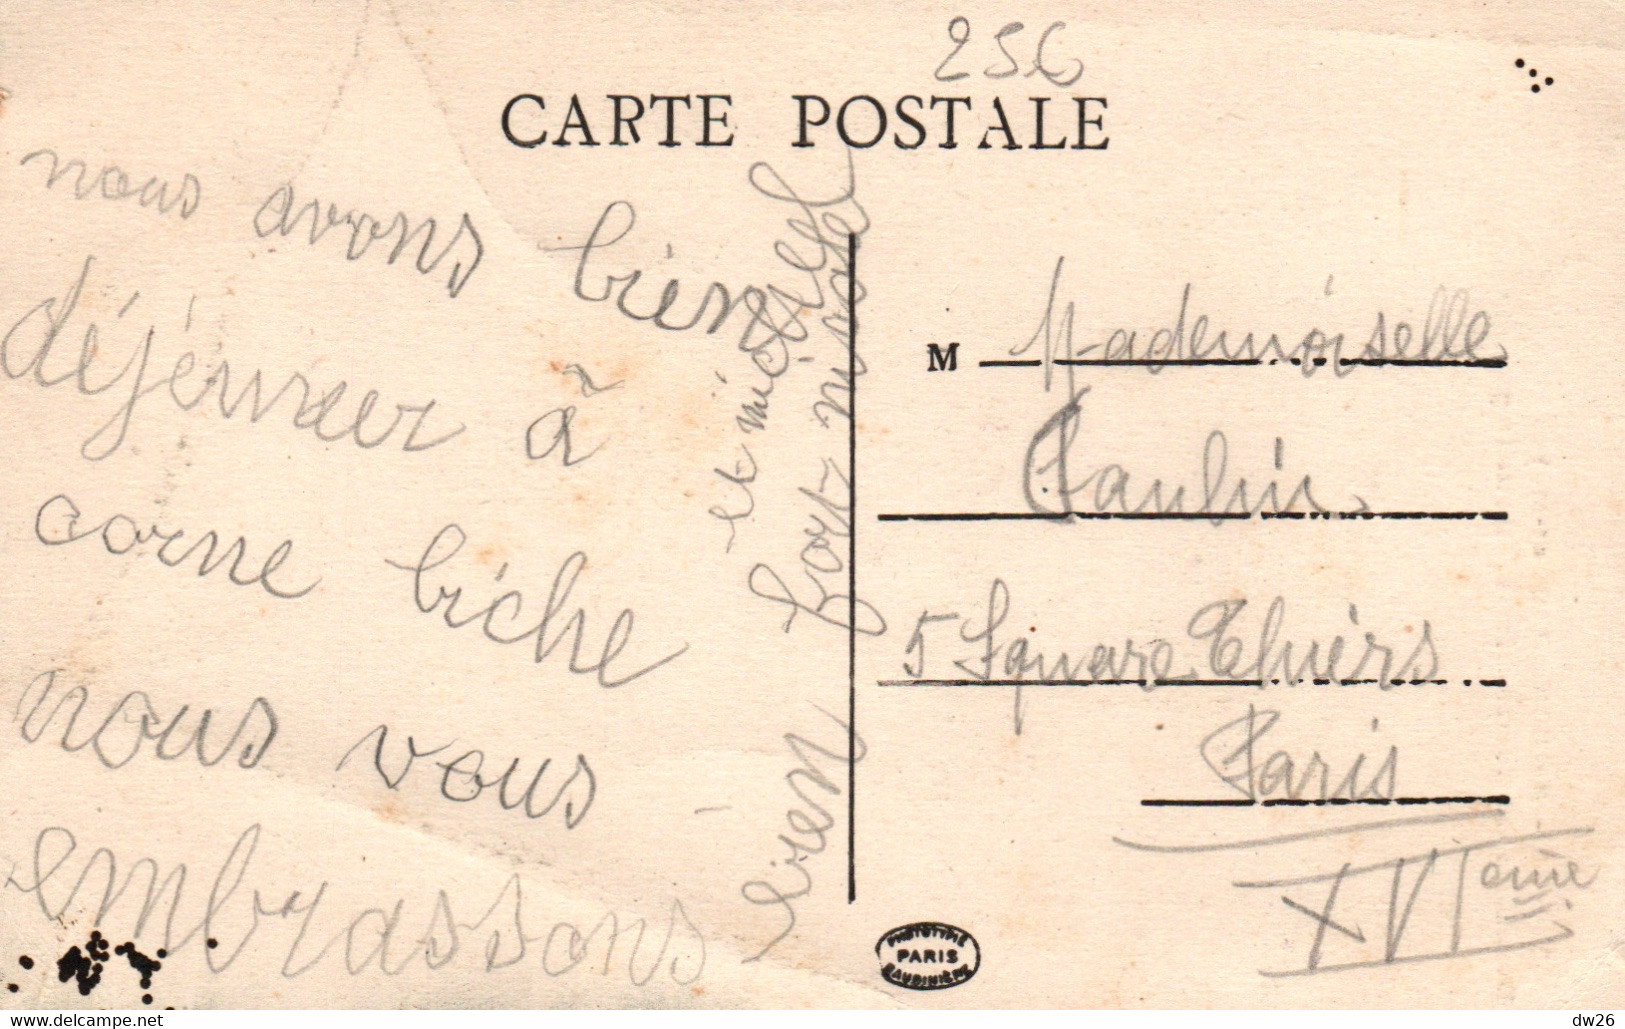 256
CARTE POSTALE
nous avons bien
déjéuneer à
corne biche
nous vous
embrassons
bien fort
et michel
M Mademoiselle
Paulin
5 Square Thiers
Paris
XVIeme
PHOTOTYPIE
PARIS
BAUDINIÈRE
www.delcampe.net
dw26